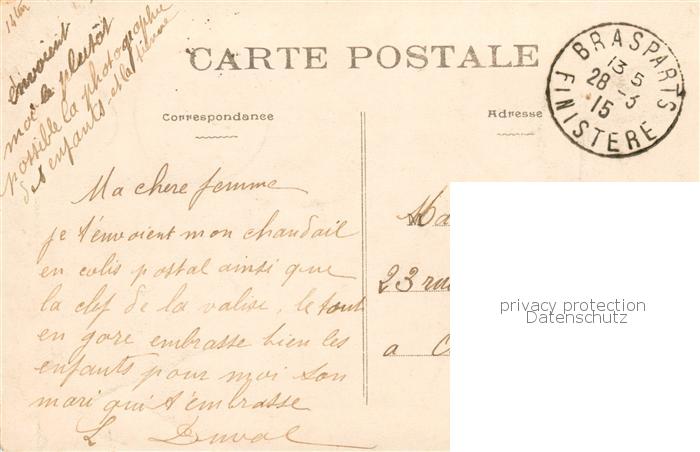 14 len
envoient
moi le plutôt
possible la photographie
des enfants et la tienne
CARTE POSTALE
BRASPARTS
13 5
28 -3
15
FINISTERE
Correspondance
Adresse
Ma chere femme
je t'envoient mon chandail
en colis postal ainsi que
la clef de la valise, le tout
en gare embrasse bien les
enfants pour moi son
mari qui t'embrasse
L. Duval
Ma
23 rue
a
privacy protection
Datenschutz